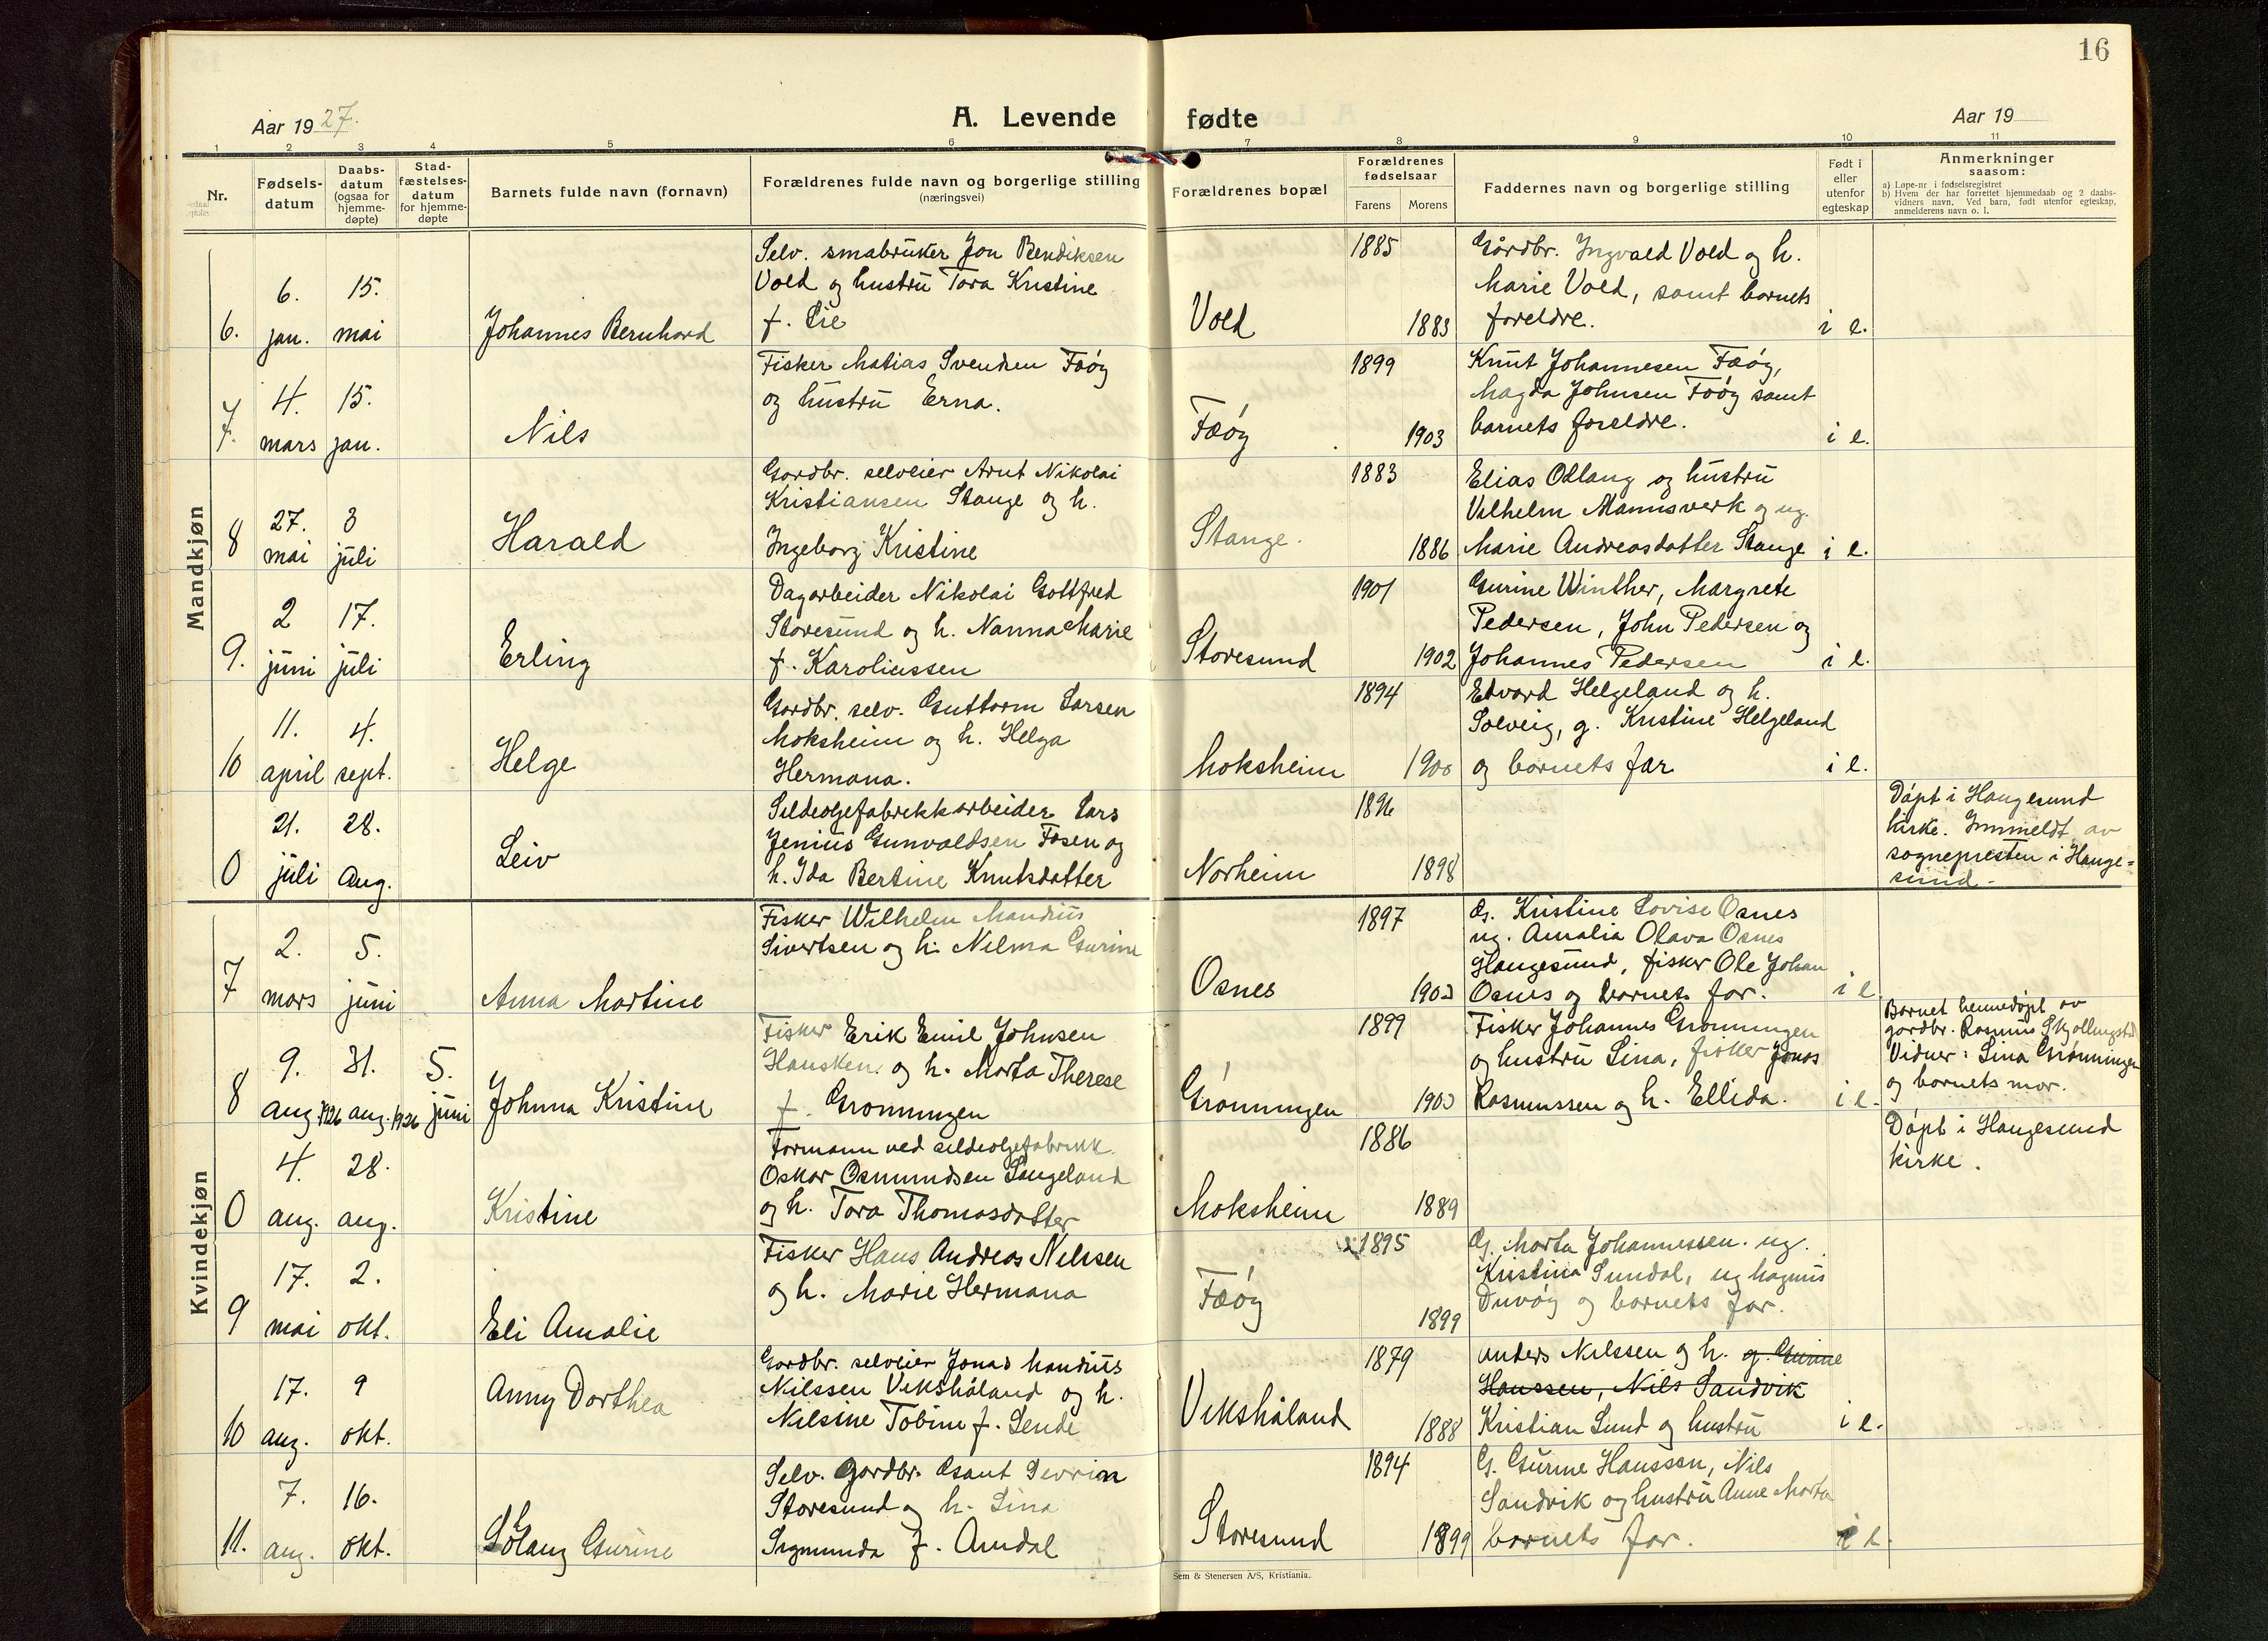 16
Aar 1927.
A. Levende fødte
Aar 19
1 2 3 4 5 6 7 8 9 10 11
Nr.
Fødsels-
datum
Daabs-
datum
(ogsaa for
hjemme-
døpte)
Stad-
fæstelses-
datum
for hjemme-
døpte
Barnets fulde navn (fornavn)
Forældrenes fulde navn og borgerlige stilling
(næringsvei)
Forældrenes bopæl
Forældrenes
fødselsaar
Farens Morens
Faddernes navn og borgerlige stilling
Født i
eller
utenfor
egteskap
Anmerkninger
saasom:
a) Løpe-nr i fødselsregistret
b) Hvem der har forrettet hjemmedaab og 2 daabs-
vidners navn. Ved barn, født utenfor egteskap,
anmelderens navn o. l.
Mandkjøn
6.
6.
jan.
15.
mai
Johannes Bernhard
Selv. småbruker Jon Bendiksen
Vold og hustru Tora Kristine
f. Lie
Vold
1885
1883
Gårdbr. Ingvald Vold og h.
Marie Vold, samt barnets
foreldre.
i e.
7.
4.
mars
15.
jan.
Nils
Fisker Matias Svendsen Fæøy
og hustru Erna.
Fæøy
1899
1903
Knut Johannesen Fæøy,
Magda Johnsen Fæøy samt
barnets foreldre.
i e.
8
27.
mai
3
juli
Harald
Gardbr. selveier Arnt Nikolai
Kristiansen Stange og h.
Ingeborg Kristine
Stange.
1883
1886
Elias Odlang og hustru
Vilhelm Mannsverk og ug.
Marie Andreasdatter Stange
i e.
9.
2
juni
17.
juli
Erling
Dagarbeider Nikolai Gottfred
Storesund og h. Nanna Marie
f. Karoliussen
Storesund
1901
1902
Gurine Winther, Margrete
Pedersen, John Pedersen og
Johannes Pedersen
i e.
10
11.
april
4.
sept.
Helge
Gardbr. selv. Guttorm Larsen
Moksheim og h. Helga
Hermana.
Moksheim
1894
1900
Edvard Helgeland og h.
Solveig, g. Kristine Helgeland
og barnets far
i e.
0
21.
juli
28.
Aug.
Leiv
Sildeoljefabrikkarbeider Lars
Jenius Gunvaldsen Fosen og
h. Ida Bertine Knutsdatter
Norheim
1896
1898
Døpt i Haugesund
kirke. Innmeldt av
sognepresten i Hauge=
sund.
Kvindekjøn
7
2.
mars
5.
juni
Anna Martine
Fisker Wilhelm Mandius
Sivertsen og h. Nilma Gurine
Osnes
1897
1903
G. Kristine Lovise Osnes
ug. Amalia Olava Osnes
Haugesund, fisker Ole Johan
Osnes og barnets far.
i e.
8
9.
aug. 1926
31.
aug. 1926
5.
juni
Johnna Kristine
Fisker Erik Emil Johnsen
Hausken og h. Marta Therese
f. Grønningen
Grønningen
1899
1903
Fisker Johannes Grønningen
og hustru Lina, fisker Jonas
Rasmussen og h. Ellida.
i e.
Barnet hjemmedøpt av
gardbr. Rasmus
Vidner: Lina Grønningen
og barnets mor.
0
4.
aug.
28.
aug.
Kristine
Formann ved sildeoljefabrikk
Oskar Osmundsen Langeland
og h. Tora Thomasdatter
Moksheim
1886
1889
Døpt i Haugesund
kirke.
9
17.
mai
2.
okt.
Eli Amalie
Fisker Hans Andreas Nilssen
og h. Marie Hermana
Fæøy
1895
1899
G. Marta Johannessen. ug.
Kristina Sundal, ug Magnus
Duvøy og barnets far.
10
17.
aug.
9
okt.
Anny Dorthea
Gardbr. selveier Jonas Mandius
Nilssen Vikshåland og h.
Nilsine Tobine f. Lende
Vikshåland
1879
1888
Anders Nilssen og h. g. Gurine
Hanssen, Nils Sandvik
Kristian Lund og hustru
i e.
11.
7.
aug.
16.
okt.
Sølaug Gurine
Selv. Gardbr. Gaut Severin
Storesund og h. Lina
Sigmunda f. Amdal
Storesund
1894
1899
G. Gurine Hanssen, Nils
Sandvik og hustru Anne Marta
barnets far.
i e.
Sem & Stenersen A/S, Kristiania.